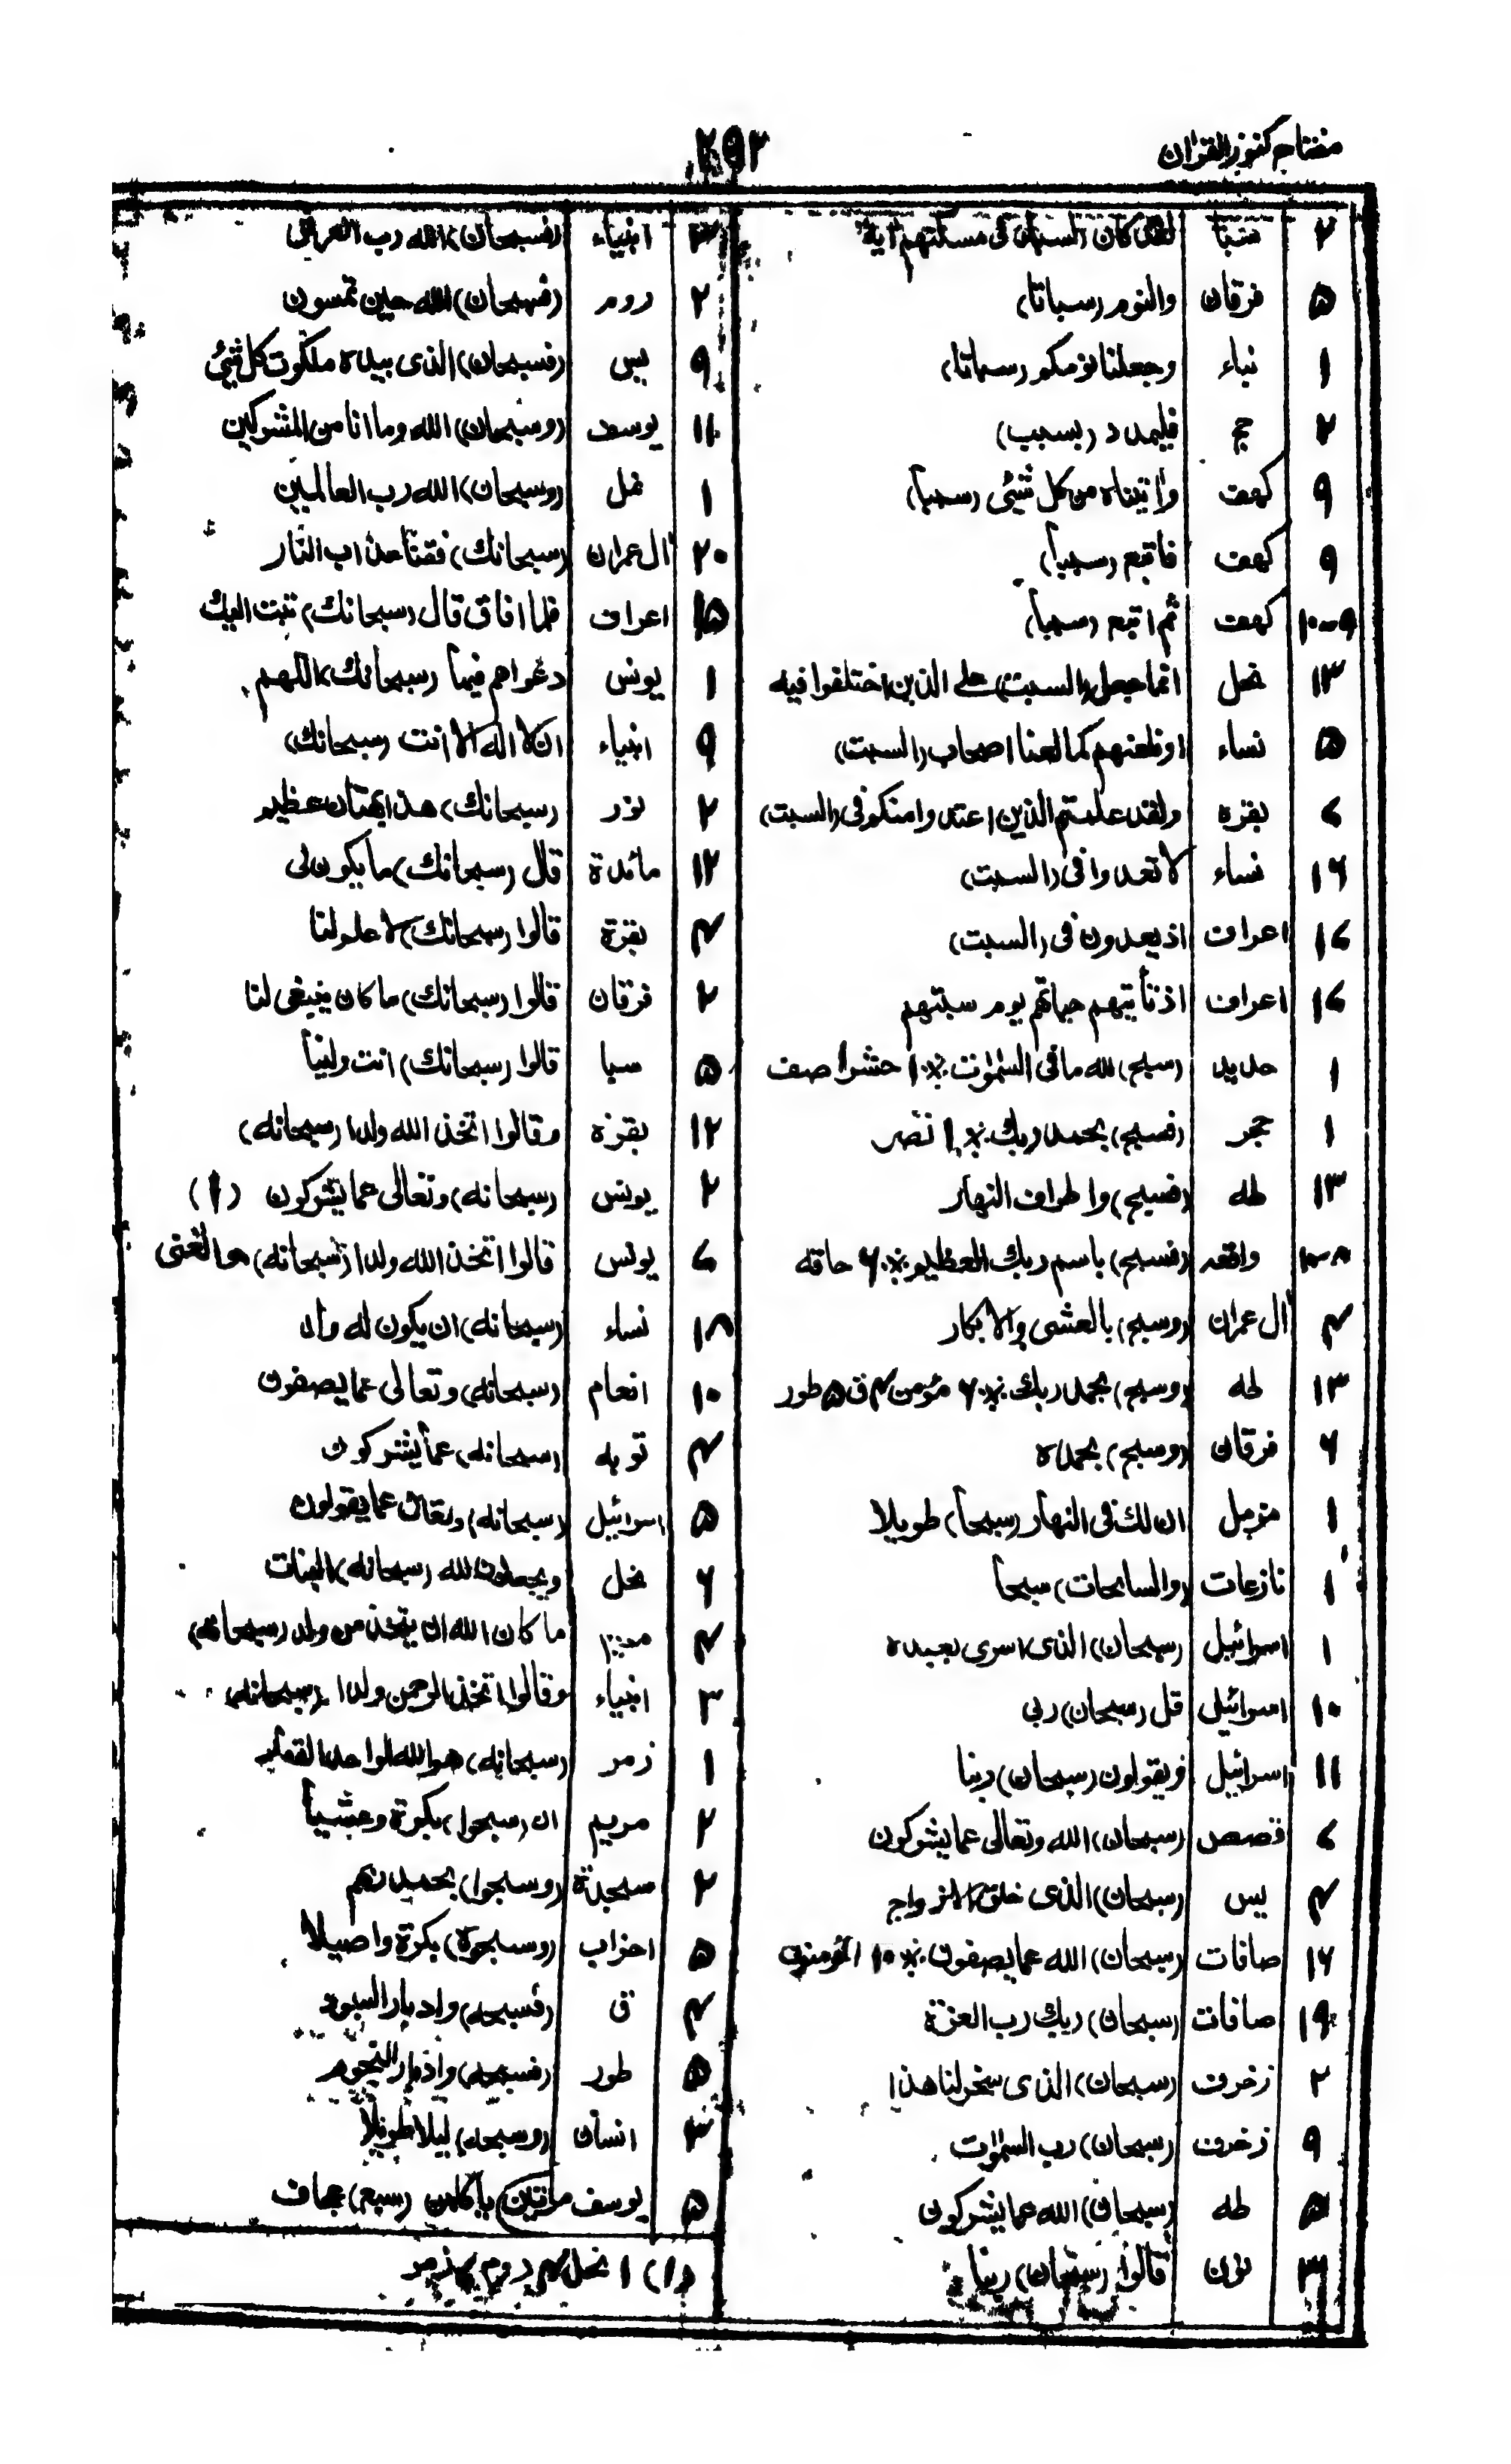 مفتاح کنوز القران
۲۵۳
۲ سبا لقد کان (لسبا) فی مسکنهم ایة
۵ فرقان والنوم (سباتا)
۱ نباء وجعلنا نومکم (سباتا)
۲ حج فلیمدد (بسبب)
۹ کهف واتیناه من کل شیئی (سببا)
۹ کهف فاتبع (سببا)
۹-۱۰ کهف ثم اتبع (سببا)
۱۳ نحل انما جعل (السبت) علی الذین اختلفوا فیه
۵ نساء اونلعنهم کما لعنا اصحاب (السبت)
۷ بقره ولقد علمتم الذین اعتدوا منکم فی (السبت)
۱۶ نساء لا تعدوا فی (السبت)
۱۶ اعراف اذیعدون فی (السبت)
۱۶ اعراف اذتأتیهم حیتانهم یوم سبتهم
۱ حدید (سبح) لله ما فی السموت ٪ ۱ حشر ۱ صف
۱ حجر (فسبح) بحمد ربک ٪ ۱ نصر
۱۳ طه (فسبح) واطراف النهار
واقعه (فسبح) باسم ربک العظیم ٪ ۲ حاقه
۴ ال عمران (وسبح) بالعشی والابکار
۱۳ طه (وسبح) بحمد ربک ٪ ۶ مؤمن ۴ ق ۵ طور
۶ فرقان (وسبح) بحمده
۱ مزمل ان لک فی النهار (سبحا) طویلا
۱ نازعات (والسابحات) سبحا
۱ اسرائیل (سبحان) الذی اسری بعبده
۱۰ اسرائیل قل (سبحان) ربی
۱۱ اسرائیل ویقولون (سبحان) ربنا
۷ قصص (سبحان) الله وتعالی عما یشرکون
۴ یس (سبحان) الذی خلق الازواج
۱۶ صافات (سبحان) الله عما یصفون ٪ ۱۰ المؤمنون
۱۹ صافات (سبحان) ربک رب العزة
۲ زخرف (سبحان) الذی سخر لنا هذا
۹ زخرف (سبحان) رب السموات
۵ طه (سبحان) الله عما یشرکون
۳ نون قالوا (سبحان) ربنا
۲ انبیاء (فسبحان) الله رب العرش
۲ روم (فسبحان) الله حین تمسون
۹ یس (فسبحان) الذی بیده ملکوت کل شیئ
۱۱ یوسف (وسبحان) الله وما انا من المشرکین
۱ نمل (وسبحان) الله رب العالمین
۲۰ ال عمران (سبحانک) فقنا عذاب النار
۱۵ اعراف فلما افاق قال (سبحانک) تبت الیک
۱ یونس دعواهم فیها (سبحانک) اللهم
۹ انبیاء ان لا اله الا انت (سبحانک)
۲ نور (سبحانک) هذا بهتان عظیم
۱۲ مائدة قال (سبحانک) ما یکون لی
۴ بقرة قالوا (سبحانک) لا علم لنا
۲ فرقان قالوا (سبحانک) ما کان ینبغی لنا
۵ سبا قالوا (سبحانک) انت ولینا
۱۲ بقره وقالوا اتخذ الله ولدا (سبحانه)
۲ یونس (سبحانه) وتعالی عما یشرکون (۱)
۷ یونس قالوا اتخذ الله ولدا (سبحانه) هو الغنی
۱۸ نساء (سبحانه) ان یکون له ولد
۱۰ انعام (سبحانه) وتعالی عما یصفون
۴ توبه (سبحانه) عما یشرکون
۵ اسرائیل (سبحانه) وتعالی عما یقولون
۶ نحل ویجعلون لله (سبحانه) البنات
۴ ما کان الله ان یتخذ من ولد (سبحانه)
۳ انبیاء وقالوا اتخذ الرحمن ولدا (سبحانه)
۱ زمر (سبحانه) هو الله الواحد القهار
۲ مریم ان (سبحوا) بکرة وعشیا
۲ سجدة (وسبحوا) بحمد ربهم
۵ احزاب (وسبحوه) بکرة واصیلا
۴ ق (فسبحه) وادبار السجود
۵ طور (فسبحه) وادبار النجوم
۳ انسان (وسبحه) لیلا طویلا
۵ یوسف مرتین یاکلهن (سبع) عجاف
(۱) ۱ نحل ۴ روم ۷ زمر